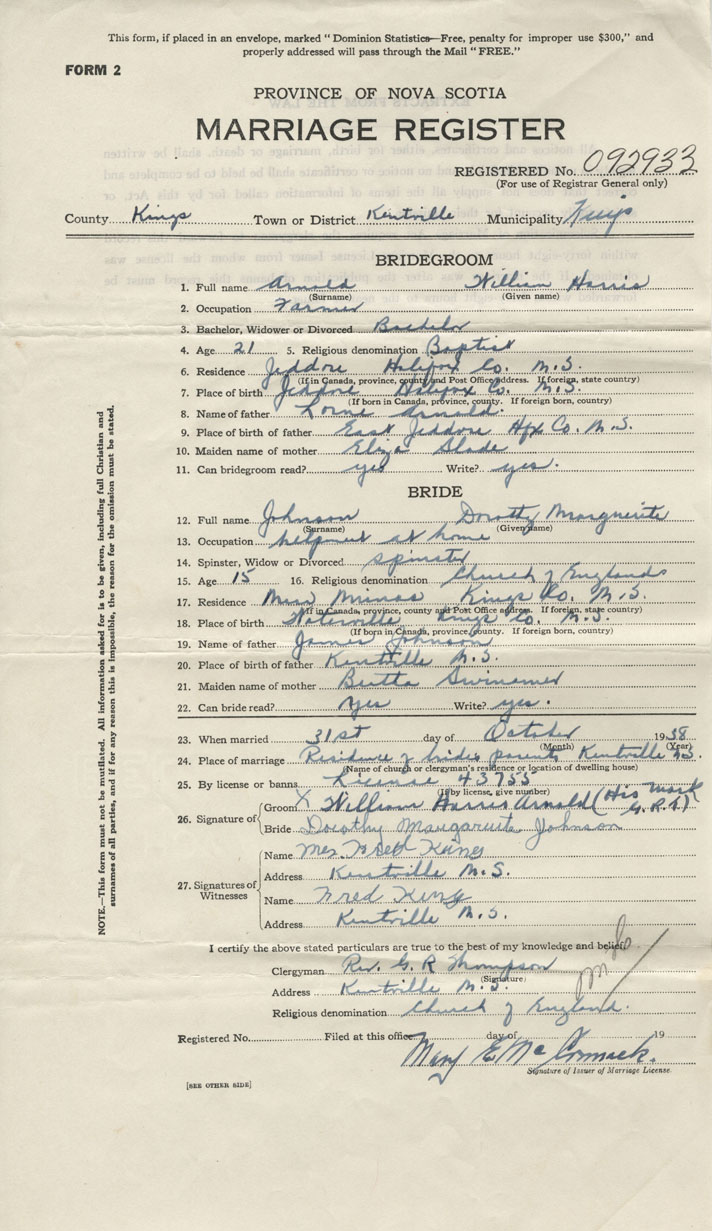 This form, if placed in an envelope, marked "Dominion Statistics—Free, penalty for improper use $300," and
properly addressed will pass through the Mail "FREE."
FORM 2
PROVINCE OF NOVA SCOTIA
MARRIAGE REGISTER
REGISTERED No. 092933
(For use of Registrar General only)
County Kings Town or District Kentville Municipality Kings
BRIDEGROOM
1. Full name Arnold William Harris
(Surname) (Given name)
2. Occupation Farmer
3. Bachelor, Widower or Divorced Bachelor
4. Age 21 5. Religious denomination Baptist
6. Residence Jeddore Halifax Co. N.S.
(If in Canada, province, county and Post Office address. If foreign, state country)
7. Place of birth Jeddore Halifax Co. N.S.
(If born in Canada, province, county. If foreign born, country)
8. Name of father Lorne Arnold.
9. Place of birth of father East Jeddore Hfx Co. N.S.
10. Maiden name of mother Eliza Slade
11. Can bridegroom read? yes Write? yes.
BRIDE
12. Full name Johnson Dorothy Marguerite
(Surname) (Given name)
13. Occupation helping at home
14. Spinster, Widow or Divorced spinster
15. Age 15 16. Religious denomination Church of England
17. Residence Minas Kings Co. N.S.
(If in Canada, province, county and Post Office address. If foreign, state country)
18. Place of birth Waterville Kings Co. N.S.
(If born in Canada, province, county. If foreign born, country)
19. Name of father James Johnson
20. Place of birth of father Kentville N.S.
21. Maiden name of mother Bertha Swinamer
22. Can bride read? Yes Write? yes.
23. When married 31st day of October 1938
(Month) (Year)
24. Place of marriage Residence of brides parents Kentville N.S.
(Name of church or clergyman's residence or location of dwelling house)
25. By license or banns License 43755
(If by license, give number)
26. Signature of Groom X William Harris Arnold (His Mark G.R.T.)
Bride Dorothy Margaruite Johnson
27. Signatures of Witnesses
Name Mrs. Fred King
Address Kentville N.S.
Name Fred King
Address Kentville N.S.
I certify the above stated particulars are true to the best of my knowledge and belief.
Clergyman Rev. G. R Thompson
(Signature)
Address Kentville N.S.
Religious denomination Church of England.
Registered No. Filed at this office day of 19
Mary E. McCormack.
Signature of Issuer of Marriage License
[SEE OTHER SIDE]
NOTE.—This form must not be mutilated. All information asked for is to be given, including full Christian and
surnames of all parties, and if for any reason this is impossible, the reason for the emission must be stated.